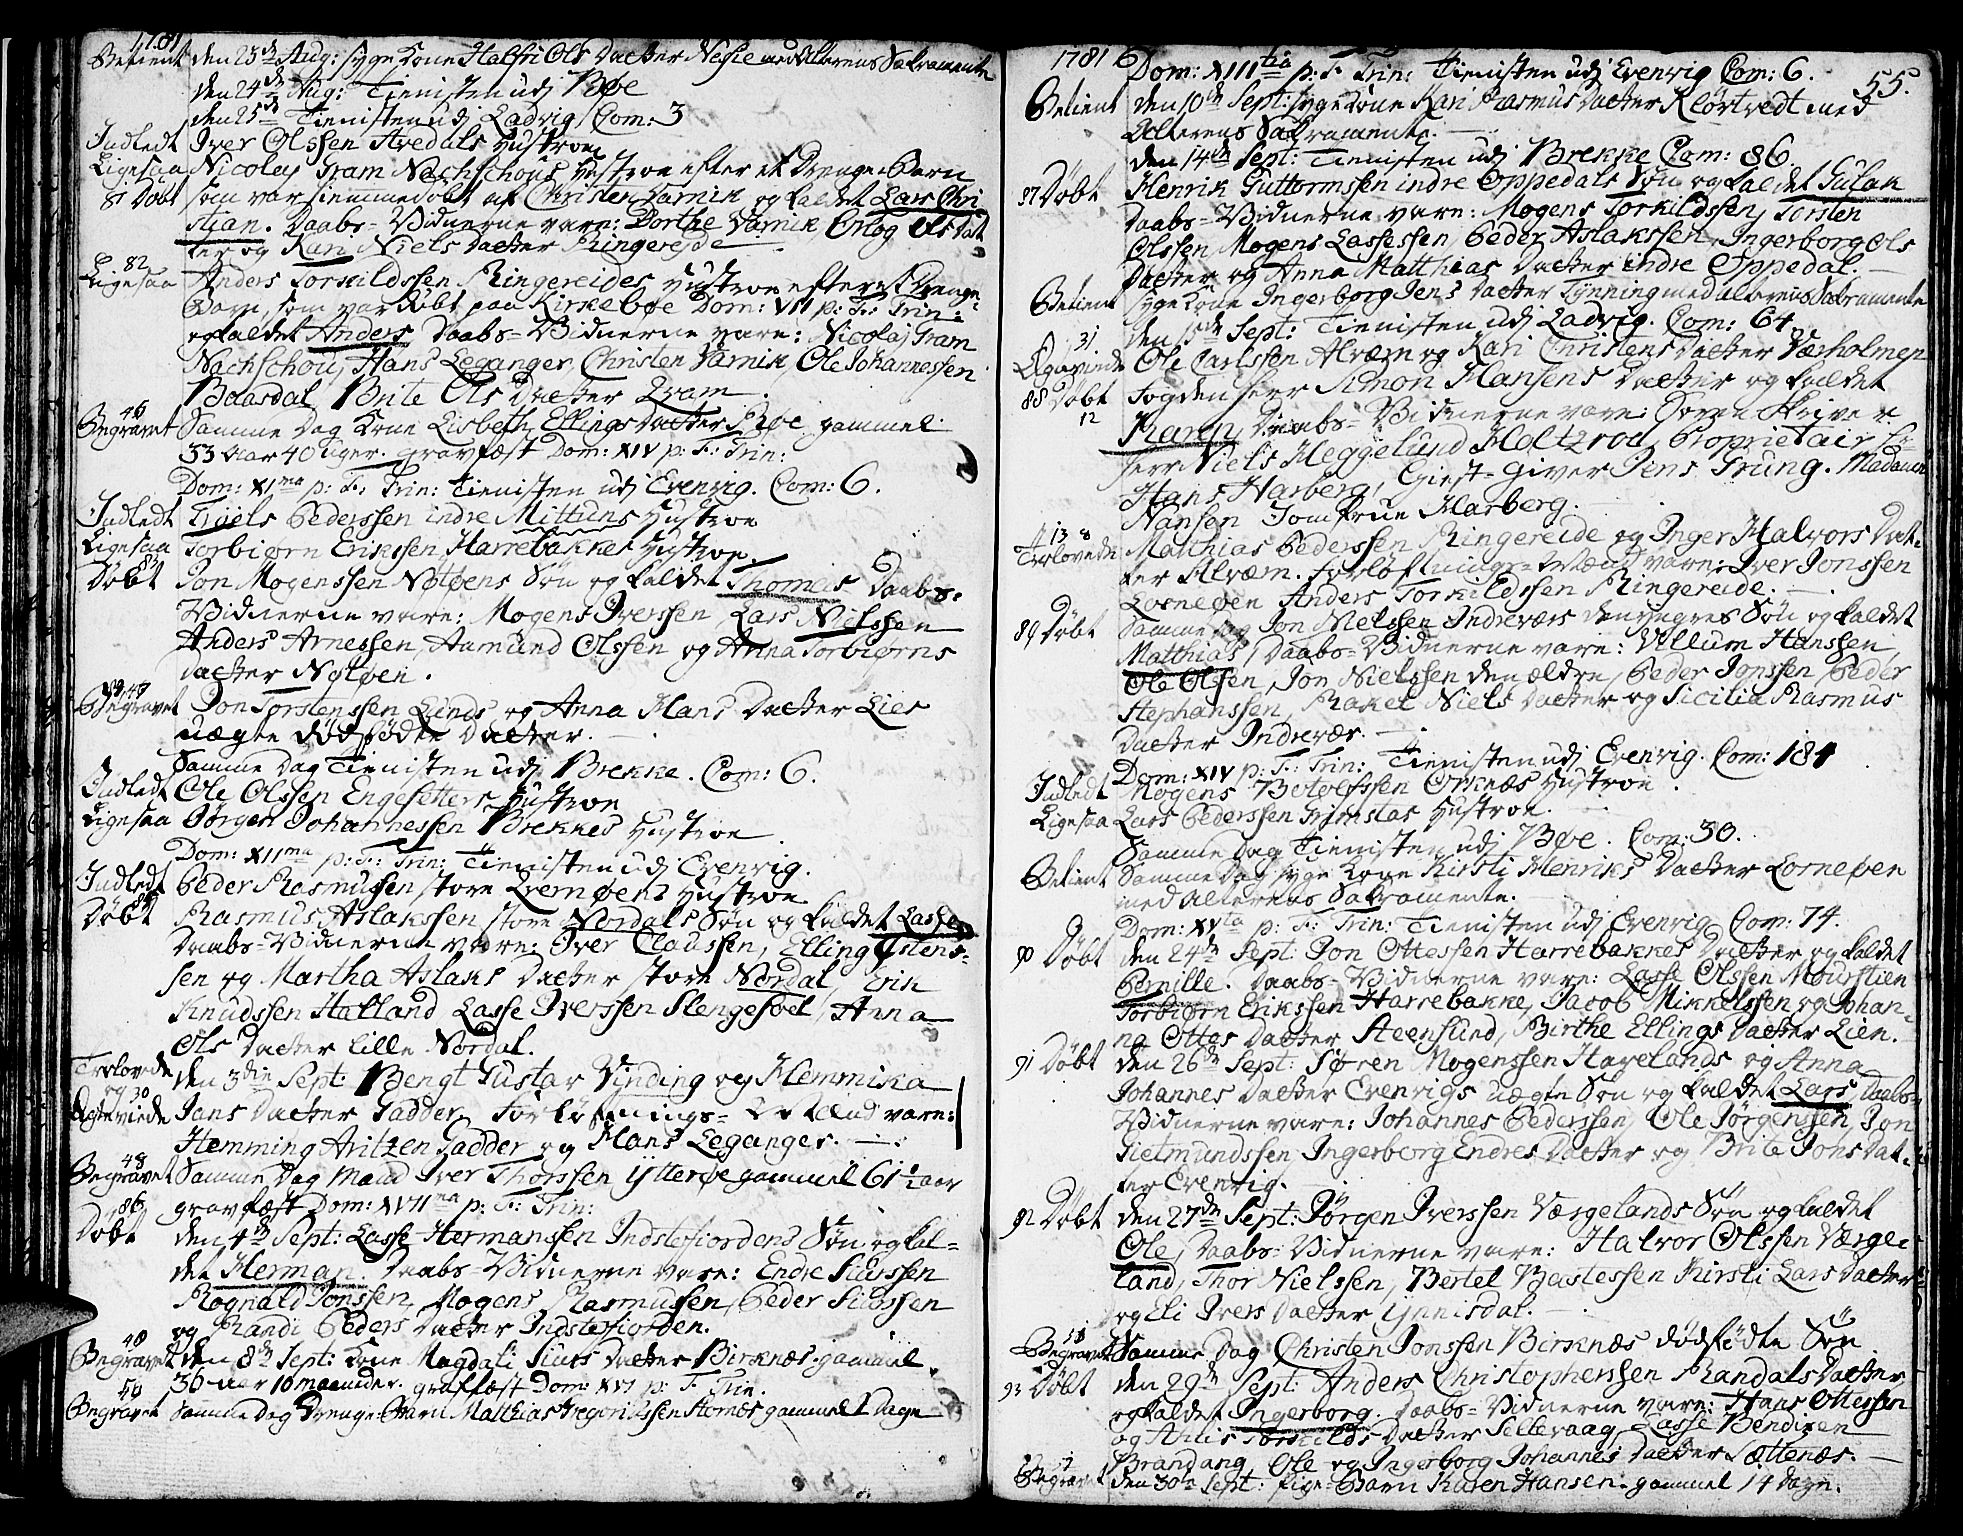 1781
Betient den 23de Aug: syge Kone Halfri Ols Datter Nesse med Alterens Sakramente
den 24de Aug: Tienisten udj Bøe
den 25de Tienisten udj Ladvig Com: 3
Indledt Iver Olssen Avedals Hustroe
Ligesaa Nicolaj Gram Nachschous Hustroe efter et Drenge-Barn
81 Døbt som var hiemmedøbt af Christen Varnik og kaldet Lars Chri
stian. Daabs-Vidnerne vare: Dorthe Varnik Ols Dat
ter og Kari Niels Datter Ringereide
82
Ligesaa Anders Torkildssen Ringereides Hustroe efter et Drenge-
Barn, som var døbt paa Kirkebøe Dom: VII p: T: Trin:
og kaldet Anders Daabs-Vidnerne vare: Nicolaj Gram
Nachschou, Hans Leganger, Christen Varnik Ole Johannessen
Brite Ols Datter Qvam.
46
Begravet Samme Dag Kone Lisbeth Ellings Datter Bøe gammel
33 Aar 40 Uger. gravfæst Dom: XIV p: T: Trin:
Dom: XIma p: T: Trin: Tienisten udj Evenvig. Com: 6.
Indledt Troels Pederssen indre Mittuns Hustroe
Ligesaa Torbiørn Erikssen Harrebakkes Hustroe
Døbt Jon Mogenssen Nøtøens Søn og kaldet Thomes Daabs-
Vidnerne vare: Mogens Iverssen, Lars Nielssen
Anders Arnessen, Aamund Olssen og Anna Torbiørns
Datter Nøtøen.
Begravet Jon Torstenssen Lunds og Anna Hans Datter Lies
uægte dødfødte Datter.
Samme Dag Tienisten udj Brekke. Com: 6.
Indledt Ole Olssen Engesetters Hustroe
Ligesaa Jørgen Johannessen Brekkes Hustroe
Dom: XIIma p: T: Trin: Tienisten udj Evenvig.
Indledt Peder Rasmussen store Hustroe
Døbt Rasmus Aslakssen store Nordals Søn og kaldet Lasse
Daabs-Vidnerne vare: Iver Claussen, Elling Istens-
sen og Martha Aslaks Datter store Nordal, Erik
Knudssen Hatland Lasse Iverssen Slengesoel, Anna
Ols Datter lille Nordal.
Trolovede den 3die Sept: Bengt Gustav Vinding og Hemmika
og 30
Ægteviede Jans Datter Gadder, Forløfnings- vare:
Hemming Aritzen Gadder og Hans Leganger.
48
Begravet Samme Dag Mand Iver Thorssen Ytterøe gammel 61 1/2 aar
gravfæst Dom: XVIIma p: T: Trin:
86
Døbt den 4de Sept: Lasse Hermanssen Indstefiordens Søn og kal-
det Herman Daabs-Vidnerne vare: Endre Siurssen
Rognald Jonssen, Mogens Rasmussen, Peder Siurssen
og Randi Peders Datter Indstefiorden.
Begravet den 8de Sept: Kone Magdali Siurs Datter Birknæs gammel
30 aar 10 maaneder. graffæst Dom: XVI p: T: Trin.
50
Begravet Samme Dag Drenge-Barn Matthias Gregoriussen gammel 1 Dage
1781 55.
Dom: XIIItia p: T: Trin: Tienisten udj Evenvig Com: 6.
Betient den 10de Sept: syge Kone Kari Rasmus Datter Kløvtvedt med
Alterens Sakramente.
den 14de Sept: Tienisten udj Brekke Com: 86.
87 Døbt Henrik Guttormssen indre Oppedals Søn og kaldet Gulak
Daabs-Vidnerne vare: Mogens Torkildssen, Torsten
Olssen, Mogens Lassessen, Peder Aslakssen, Ingerborg Ols
Datter og Anna Matthias Datter indre Oppedal.
Betient syge Kone Ingerborg Jens Datter Tynning med Alterens Sakramente
den Sept: Tienisten udj Ladvig. Com: 64
31
Ægteviede Ole Carlssen Alvæn og Kari Christens Datter Værholmen
88 Døbt Fogden Herr Simon Hansens Datter og kaldet
12
Karen, Daabs-Vidnerne vare: Soren Skriver
Herr Niels Heggelund Holtzroa, Proprietair
Hans Harberg, Giest-Giver Jens Trung. Madame
Hansen Jomfrue Harberg.
Trolovede Matthias Pederssen Ringereide og Inger Halvors Dat-
ter Alvæn. Forløfnings-Mænd vare: Iver Jonssen
Losneøen Anders Torkildssen Ringereide.
89 Døbt Samme Dag Jon Nielssen Indreværs den yngres Søn og kaldet
Matthias, Daabs-Vidnerne vare: Villum Hanssen,
Ole Olsen, Jon Nielssen den ældre, Peder Jonssen, Peder
Stephanssen, Rakel Niels Datter og Sicilia Rasmus
Datter Indrevær.
Dom: XIV p: T: Trin: Tienisten udj Evenvig. Com: 184
Indledt Mogens Botolfssen Orknæs Hustroe.
Ligesaa Lars Pederssen Grimstas Hustroe.
Samme Dag Tienisten udj Bøe. Com: 30.
Betient Samme Dag syge Kone Kirsti Henriks Datter Losneøen
med Alterens Sakramente.
Dom: XVta p: T: Trin: Tienisten udj Evenvig Com: 74.
90 Døbt den 24de Sept: Jon Ottessen Harrebakkes Datter og kaldet
Pernille. Daabs-Vidnerne vare: Lasse Olssen Moursties
Torbiørn Erikssen Harrebakke, Jacob Mikkelssen og Johan-
na Ottes Datter Steensund, Birthe Ellings Datter Lien.
91 Døbt den 26de Sept: Søren Mogenssen Havelands og Anna
Johannes Datter Evenvigs uægte Søn og kaldet Lars, Daabs-
Vidnerne vare: Johannes Pederssen, Ole Jørgenssen, Jon
Sietmundssen Ingerborg Endres Datter og Brite Jons Dat-
ter Evenvig.
92 Døbt den 27de Sept: Jørgen Iverssen Værgelands Søn og kaldet
Ole, Daabs-Vidnerne vare: Halvor Olssen Værge-
land, Thor Nielssen, Bertel Bastessen Kirsti Lars Datter
og Eli Ivers Datter Ynnisdal.
Begravet Samme Dag Christen Jonssen Birknæs dødfødte Søn
93 Døbt den 29de Sept: Anders Christophersen Randals Datter
og kaldet Ingerborg. Daabs-Vidnerne vare: Hans Ottessen
og Ahlis Torkilds Datter Sellevaag, Lasse Bendixen
Brandang, Ole og Ingerborg Johannes Datter Sættenæs.
Begravet den 30te Sept: Pige-Barn Karen Hansen gammel 14 Dage.